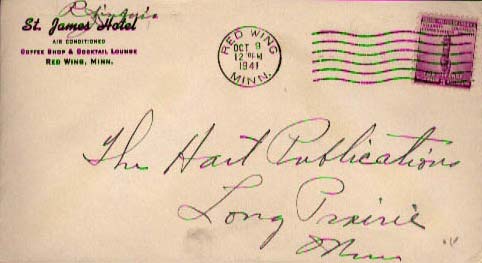 St. James Hotel
AIR CONDITIONED
COFFEE SHOP & COCKTAIL LOUNGE
RED WING, MINN.
RED WING
OCT 9
12 PM
1941
MINN.
The Hart Publications
Long Prairie
Minn